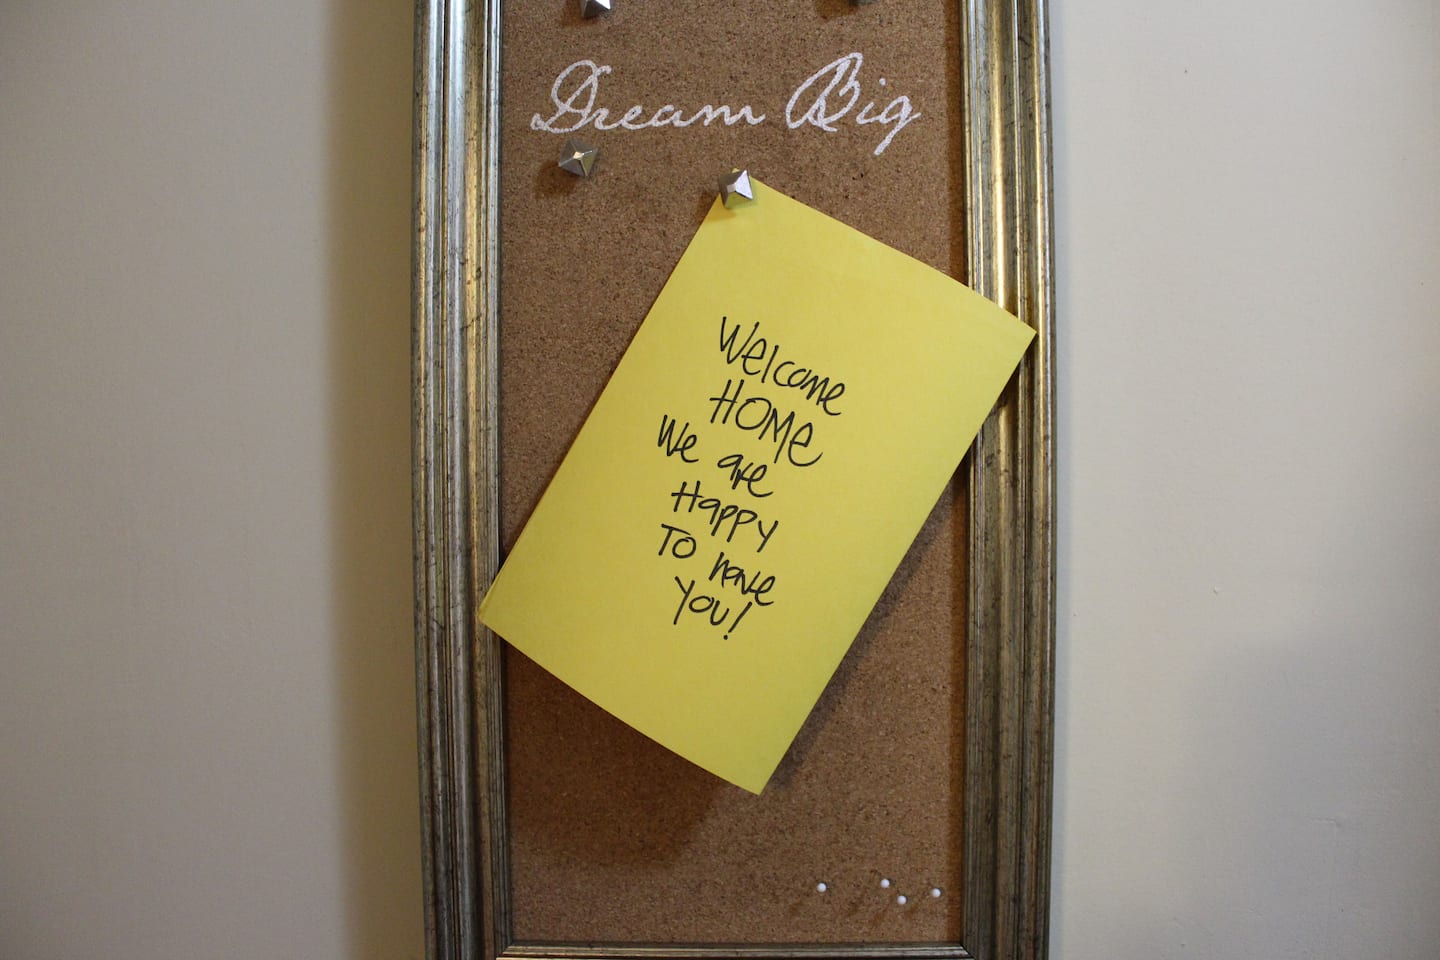 Dream Big
Welcome
HOME
We are
Happy
To have
You!